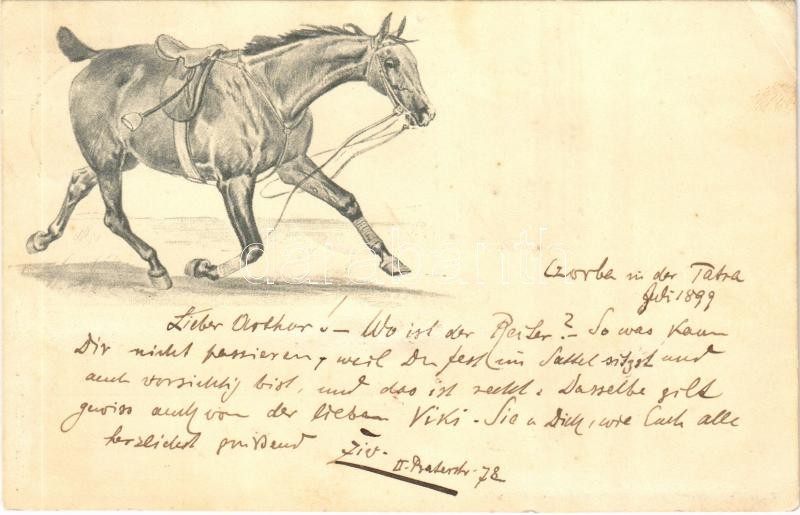 Czorba in der Tatra
Juli 1899
Lieber Arthur! – Wo ist der Reiter? – So was kann
Dir nicht passieren, weil Du fest im Sattel sitzst und
auch vorsichtig bist, und das ist recht. Dasselbe gilt
gewiss auch von der lieben Viki. Sie u Dich, wie Euch alle
herzlichst grüßend
II. Praterstr. 78
darabanth